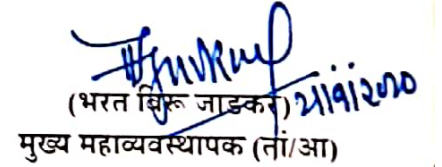 (भरत बिरू जाडकर) २१/१/२०२०
मुख्य महाव्यवस्थापक (तां/आ)